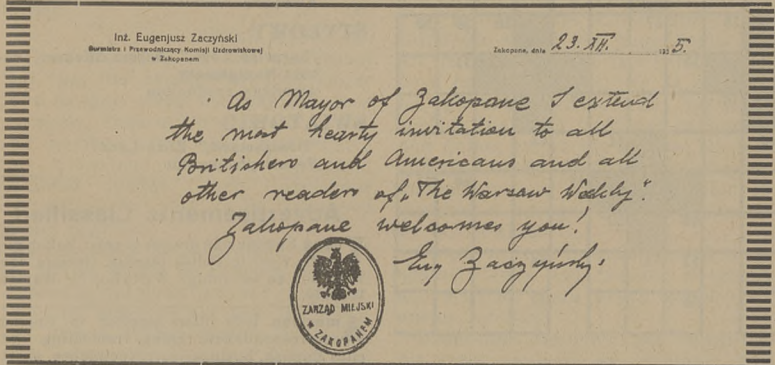 Inż. Eugenjusz Zaczyński
Burmistrz i Przewodniczący Komisji Uzdrowiskowej
w Zakopanem
Zakopane, dnia 23. XII. 1935.
As Mayor of Zakopane I extend
the most hearty invitation to all
Britishers and Americans and all
other readers of „The Warsaw Weekly".
Zakopane welcomes you!
Eug Zaczyński
ZARZĄD MIEJSKI
w ZAKOPANEM